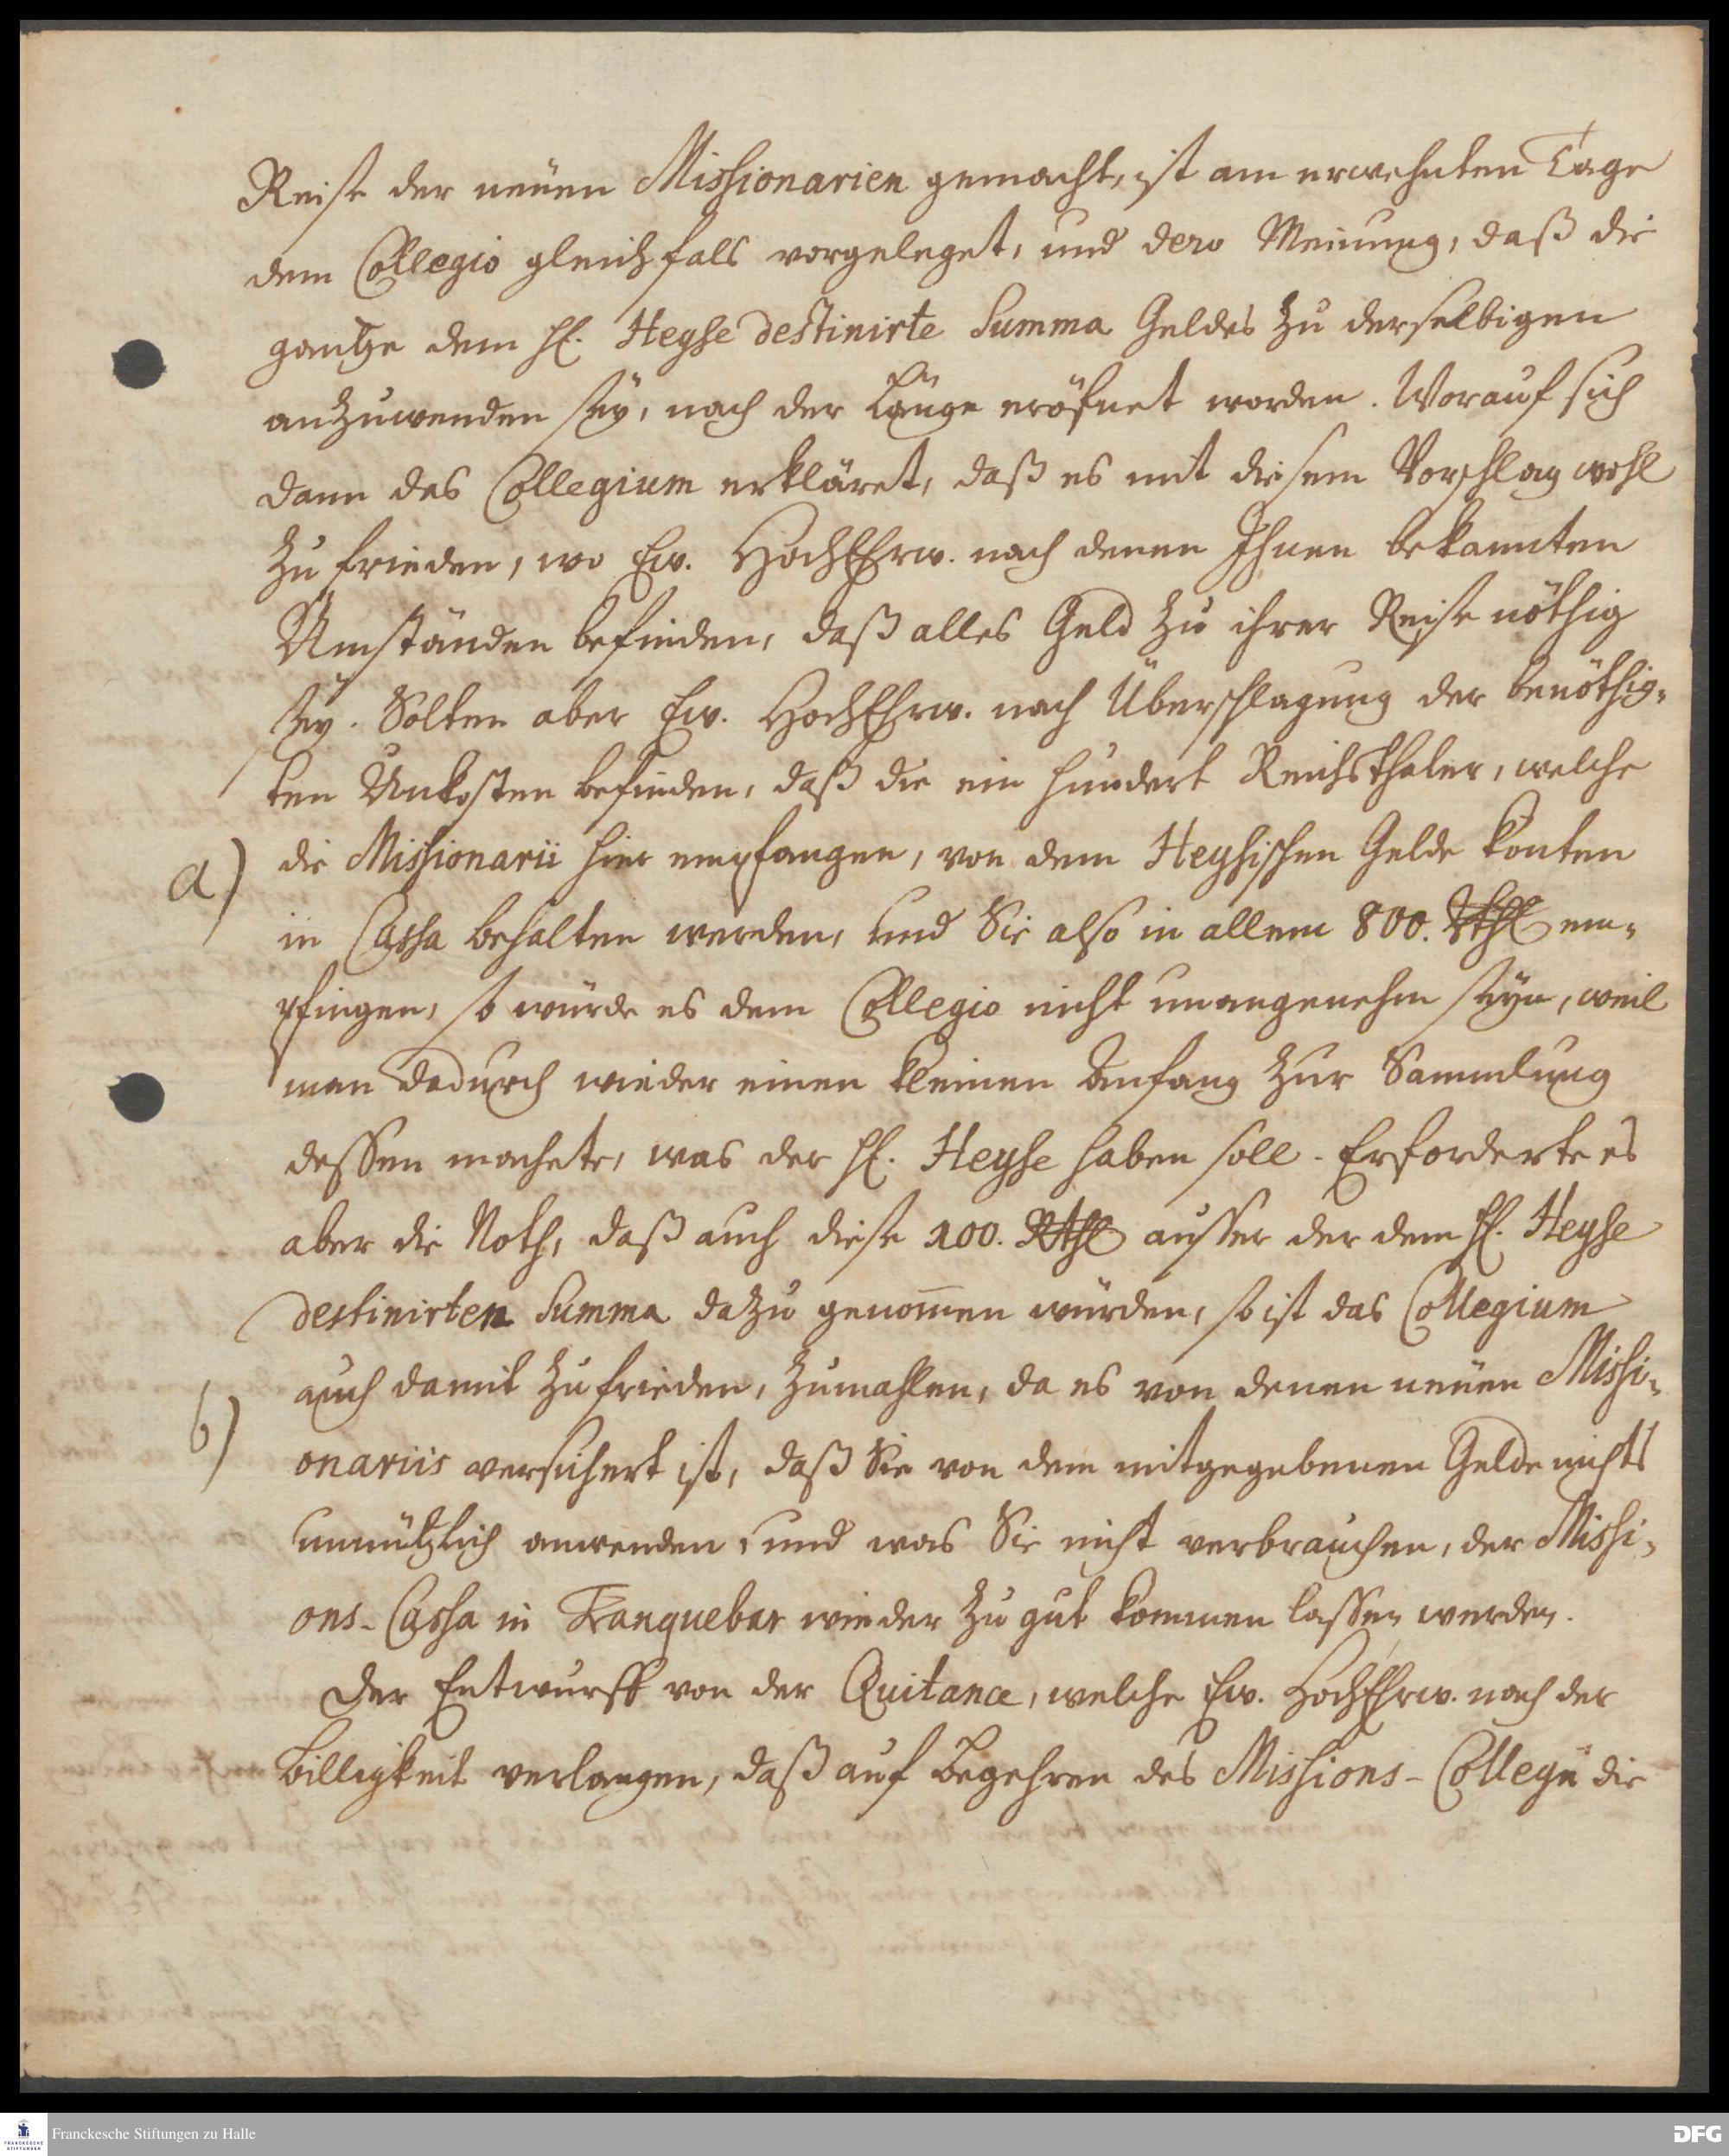 Reise der neüen Missionarien gemacht, ist am erwehnten Tage
dem Collegio gleichfals vorgeleget, und dero Meinung, daß die
gantze dem H. Heyse destinirte Summa Geldes zu derselbigen
anzuwenden seÿ, nach der Länge eröfnet worden. Worauf sich
dann das Collegium erkläret, daß es mit diesem Vorschlag wohl
zu frieden, wo Ew. HochEhrw. nach denen Ihnen bekannten
Umständen befinden, daß alles Geld zu ihrer Reise nöthig
seÿ. Solten aber Ew. HochEhrw. nach Überschlagung der benöthig-
ten Unkosten befinden, daß die ein hundert Reichsthaler, welche
a) die Missionarii hier empfangen, von dem Heysischen Gelde könten
in Cassa behalten werden, und Sie also in allem 800. Rthl em-
pfingen, so würde es dem Collegio nicht unangenehm seÿn, weil
man dadurch wieder einen kleinen Anfang zur Sammlung
dessen machete, was der H. Heyse haben soll. Erforderte es
aber die Noth, daß auch diese 100. Rthl ausser der dem H. Heyse
destinirten Summa dazu genom̄en würden, so ist das Collegium
auch damit zu frieden, zumahlen, da es von denen neüen Missi-
b) onariis versichert ist, daß Sie von dem mitgegebenen Gelde nichts
unnützlich anwenden, und was Sie nicht verbrauchen, der Missi-
ons-Cassa in Tranquebar wieder zu gut kommen lassen werden.
Der Entwurff von der Quitance, welche Ew. HochEhrw. nach der
Billigkeit verlangen, daß auf Begehren des Missions-Collegii die
Franckesche Stiftungen zu Halle
FRANCKESCHE STIFTUNGEN
DFG